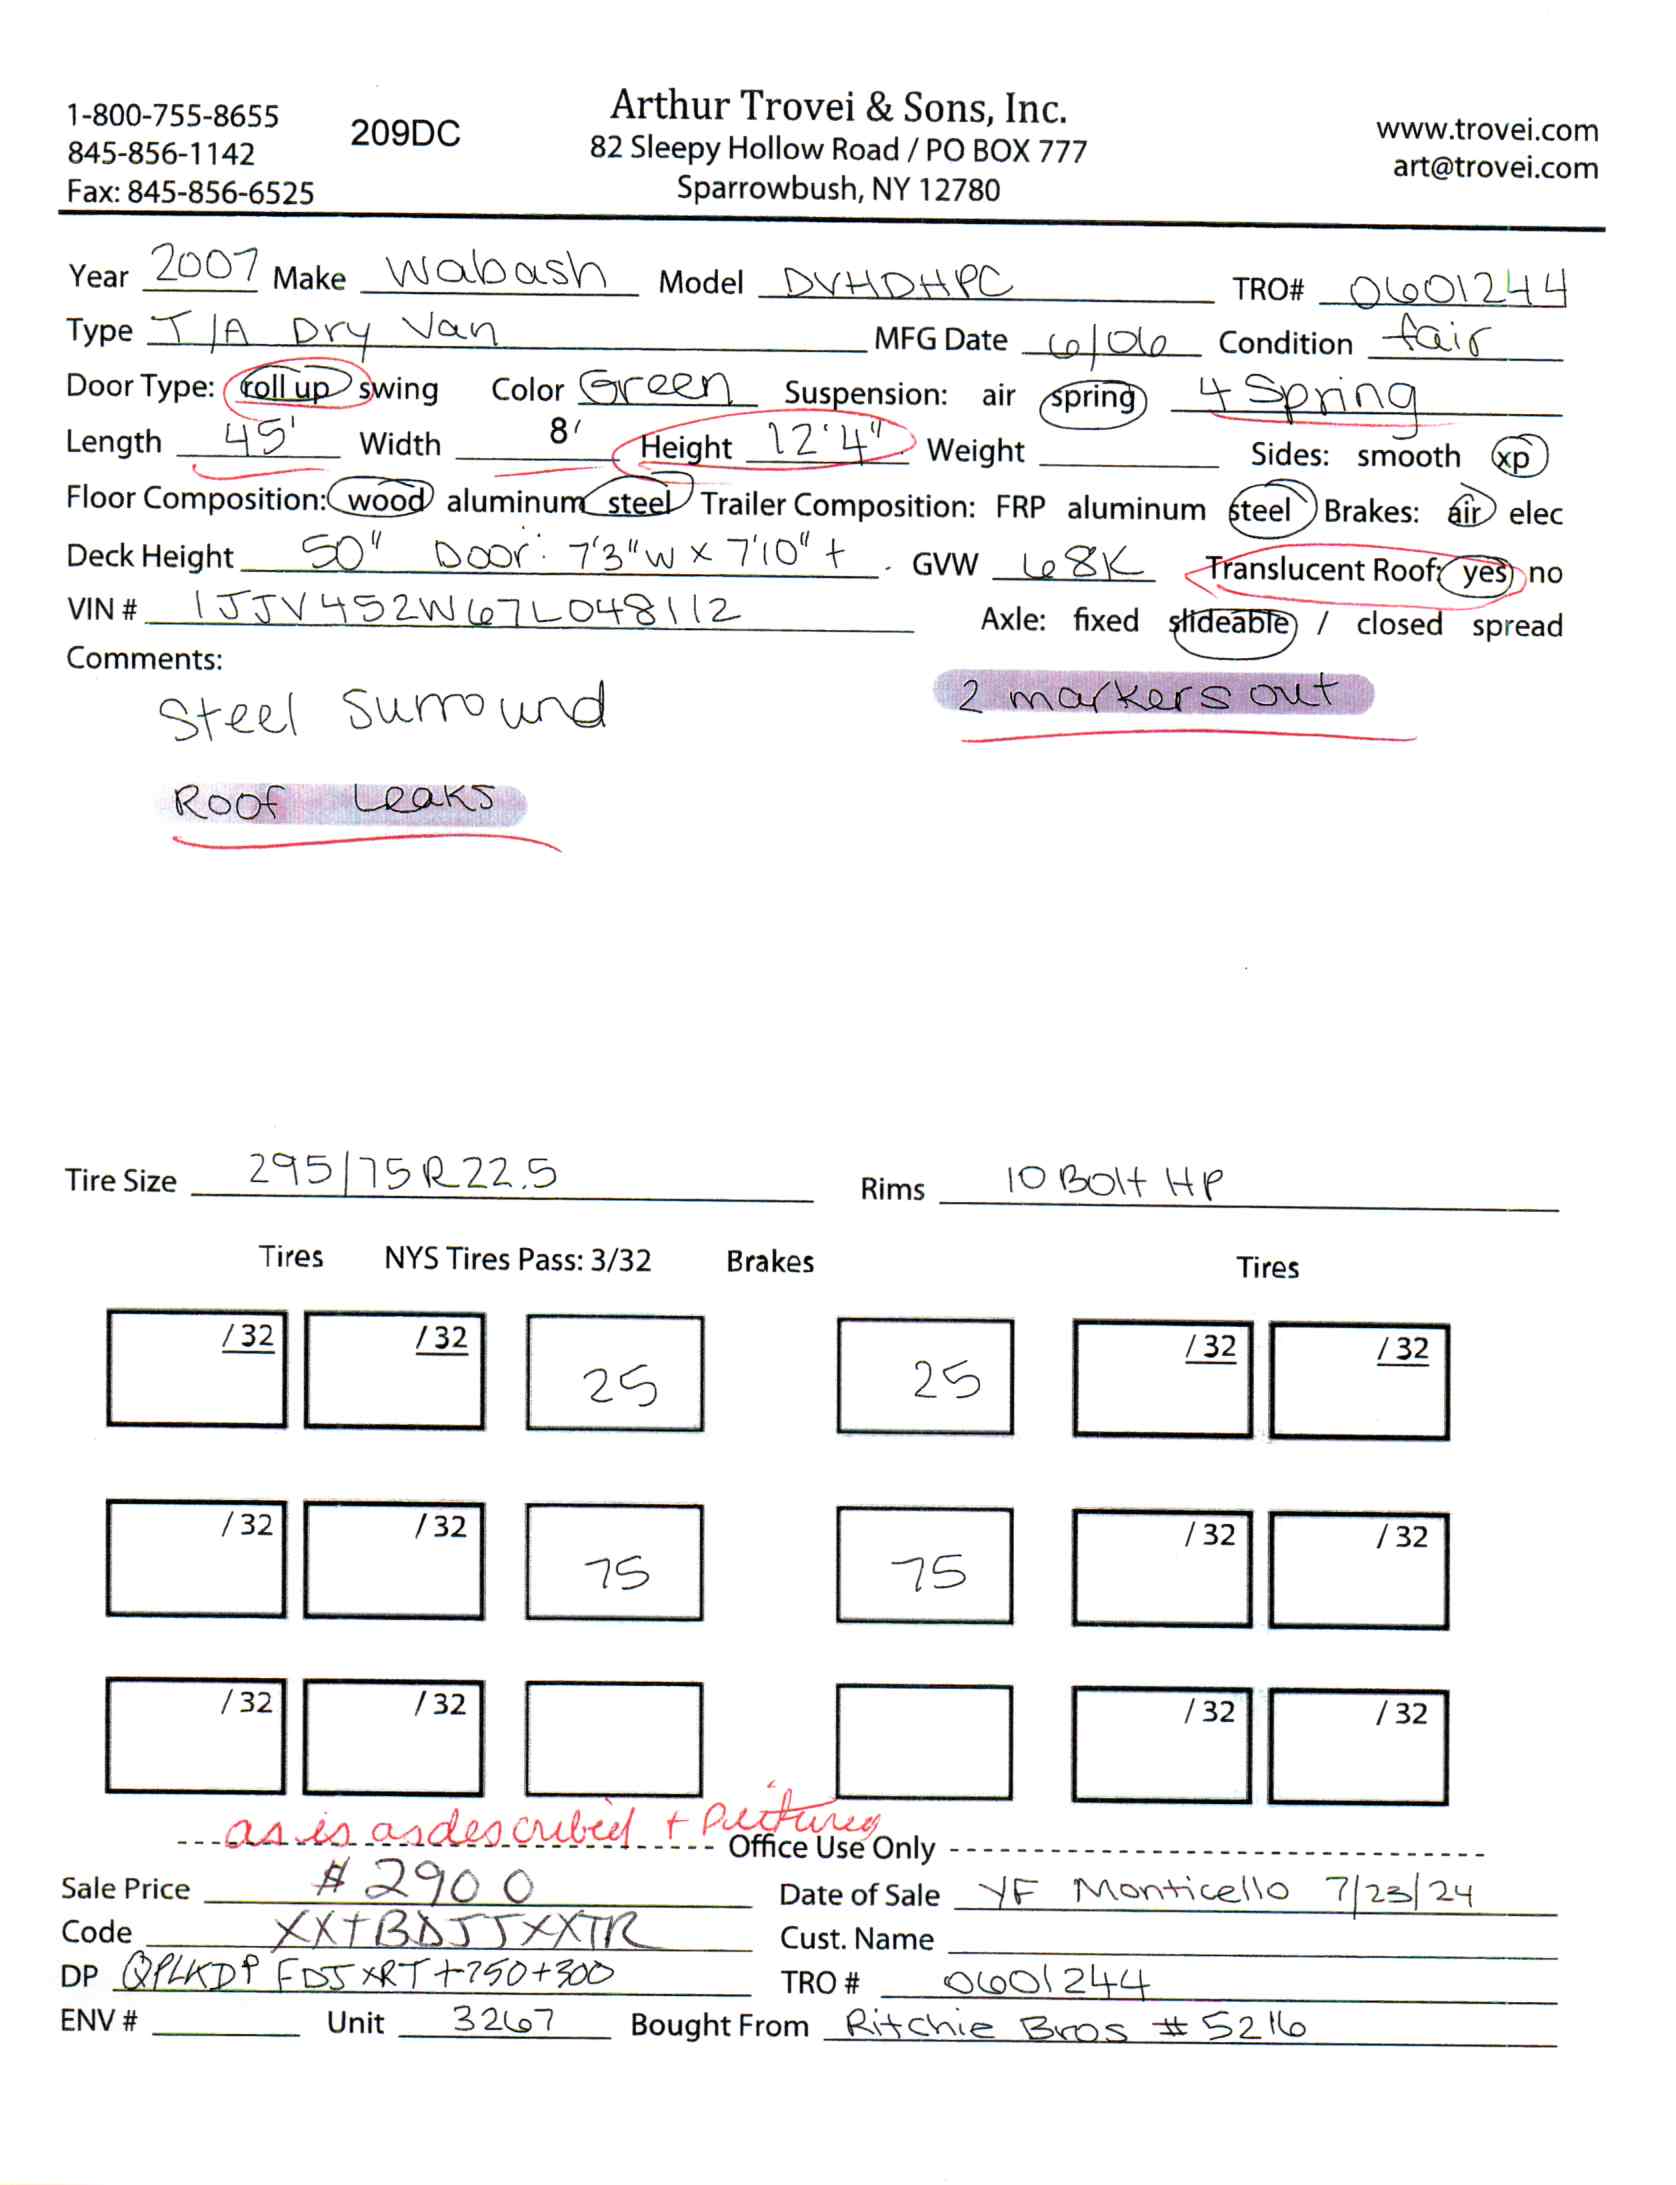 1-800-755-8655
845-856-1142
Fax: 845-856-6525
209DC
Arthur Trovei & Sons, Inc.
82 Sleepy Hollow Road / PO BOX 777
Sparrowbush, NY 12780
www.trovei.com
art@trovei.com
Year 2007 Make Wabash Model DVHDHPC TRO# 0601244
Type T/A Dry Van MFG Date 6/06 Condition fair
Door Type: roll up swing Color Green Suspension: air spring 4 Spring
Length 45' Width 8' Height 12'4" Weight Sides: smooth xp
Floor Composition: wood aluminum steel Trailer Composition: FRP aluminum steel Brakes: air elec
Deck Height 50" Door: 7'3"W x 7'10" + GVW 68K Translucent Roof: yes no
VIN # 1JJV452W67L048112 Axle: fixed slideable / closed spread
Comments:
Steel Surround 2 markers out
Roof Leaks
Tire Size 295/75R22.5 Rims 10 Bolt HP
Tires NYS Tires Pass: 3/32 Brakes Tires
/ 32 / 32 25 25 / 32 / 32
/ 32 / 32 75 75 / 32 / 32
/ 32 / 32 / 32 / 32
as is as described + Pictures
Office Use Only
Sale Price $2900 Date of Sale YF Monticello 7/23/24
Code XX+BDJJXXTR Cust. Name
DP QPLKDP FDJXRT+750+300 TRO # 0601244
ENV # Unit 3267 Bought From Ritchie Bros # 5216